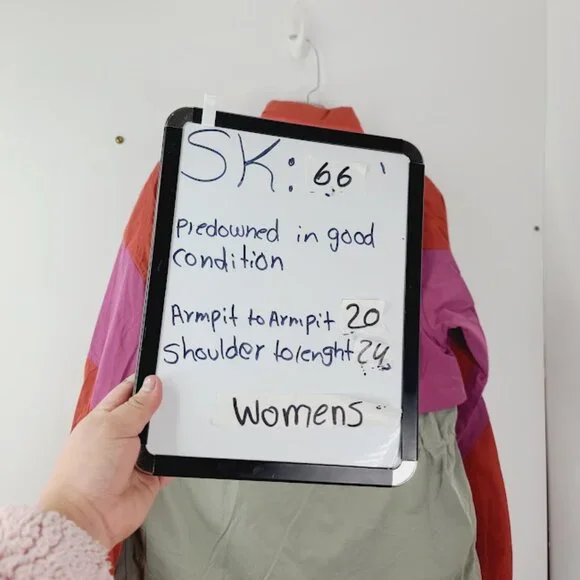 SK: 66
Predowned in good
condition
Armpit to Armpit 20
Shoulder to lenght 24
Womens